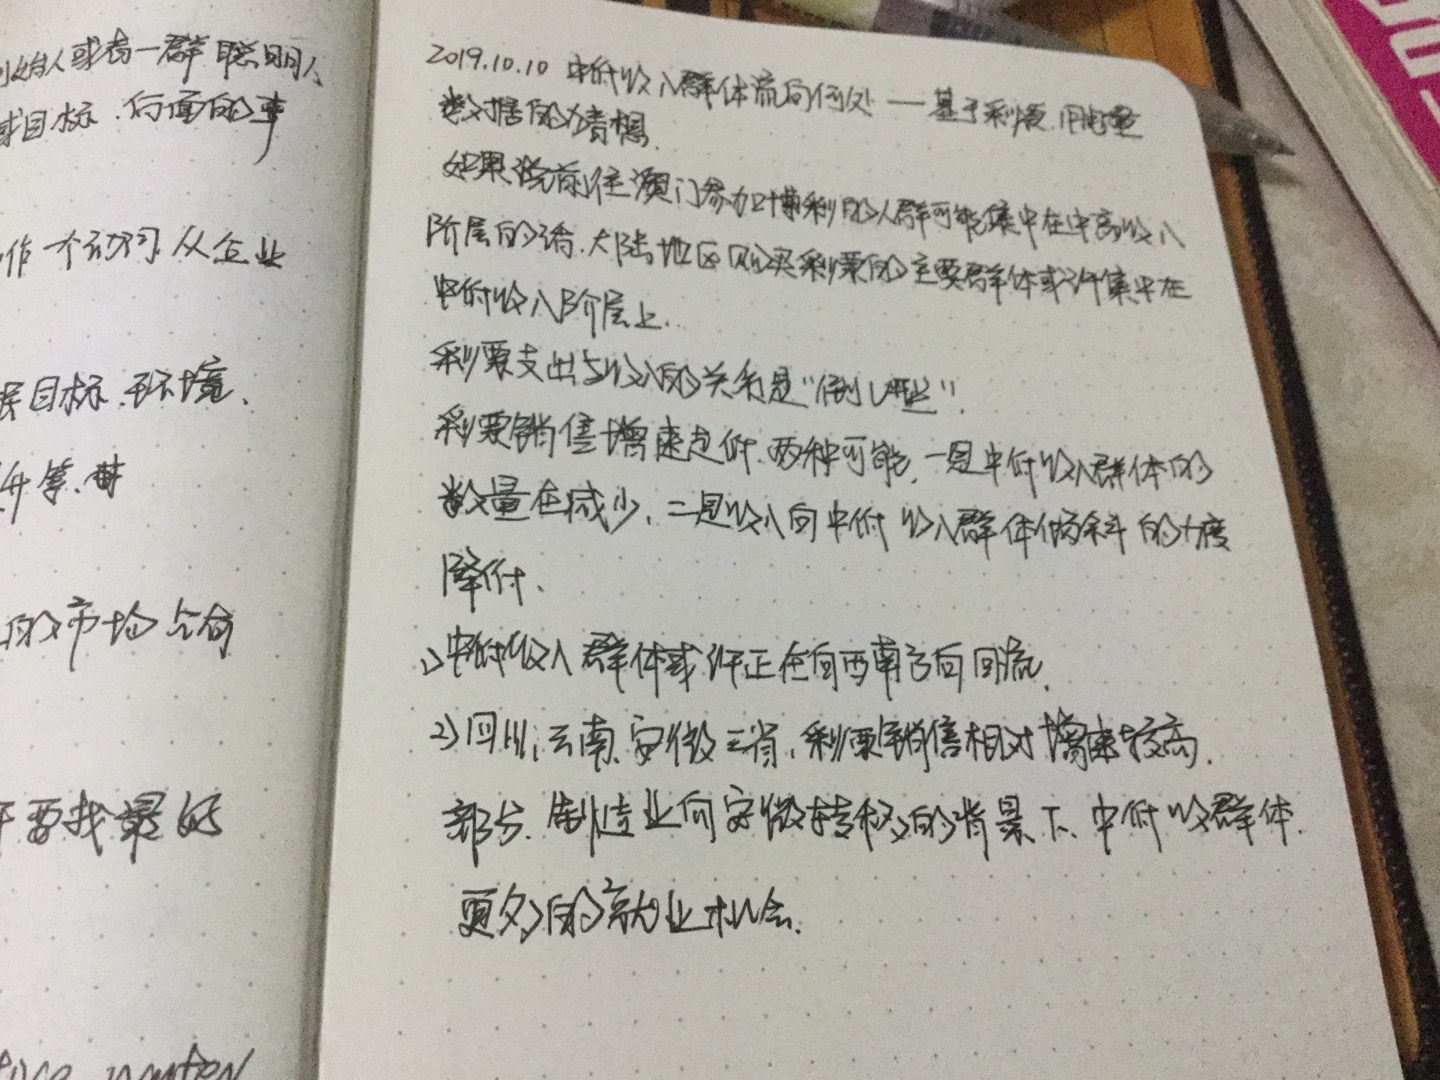 始人或者一群聪明人
或目标.后面的事
作个动词.从企业
目标.环境.
升等.
的市场
要找最好
2019.10.10 中低收入群体流向何处——基于彩票.用电量
数据的猜想.
如果说前往澳门参加博彩的人群可能集中在中高收入
阶层的话.大陆地区购买彩票的主要群体或许集中在
中低收入阶层上.
彩票支出与收入的关系是“倒U型”.
彩票销售增速走低.两种可能,一是中低收入群体的
数量在减少,二是收入向中低收入群体倾斜的力度
降低.
1)中低收入群体或许正在向西南方向回流.
2)四川,云南,安徽三省,彩票销售相对增速较高.
部分.制造业向安徽转移的背景下、中低收群体.
更多的就业机会.